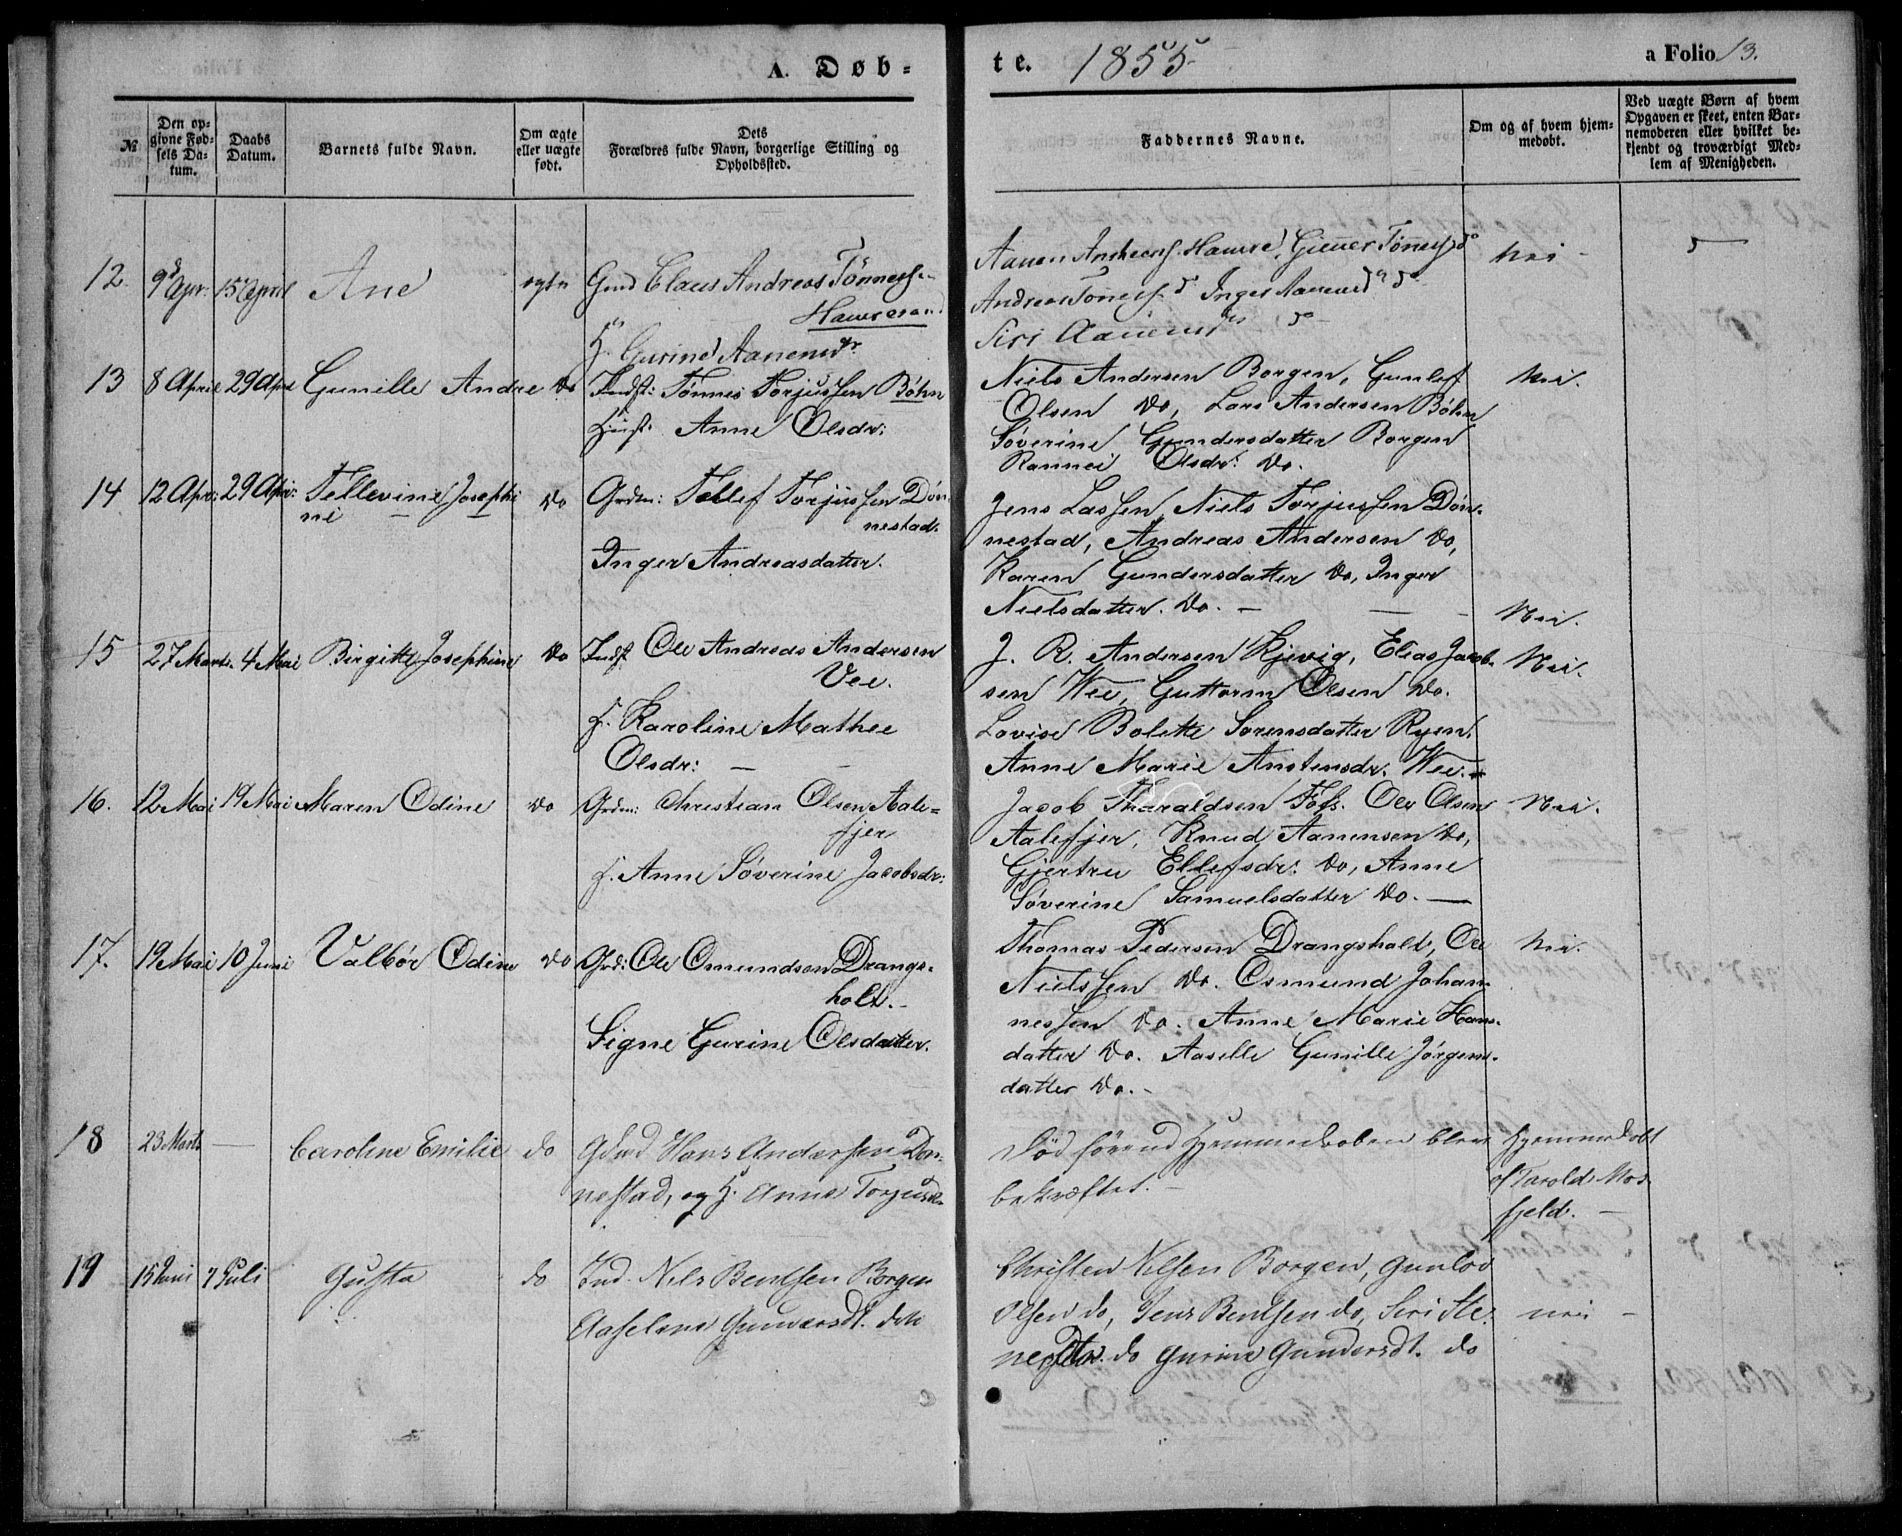 A. Døb=
te. 1855
a Folio 13.
№
Den op=
givne Fød=
sels Da=
tum.
Daabs
Datum.
Barnets fulde Navn.
Om ægte
eller uægte
født.
Dets
Forældres fulde Navn, borgerlige Stilling og
Opholdssted.
Faddernes Navne.
Om og af hvem hjem=
medøbt.
Ved uægte Børn af hvem
Opgaven er skeet, enten Bar=
nemoderen eller hvilket be=
kjendt og troværdigt Med=
lem af Menigheden.
12 9 Apr: 15 April Ane egte Gmd Claus Andreas Tønness.
Hamresand
H. Gurine Aanensdr.
Aanen Andreas. Hamre, Gieruer Tønness. do
Andreas Tønness. do Inger Aanensd do
Siri Aanensdr do
Nei
13 8 April 29 Apr Gunille Andrea Do Indst: Tønnes Torjussen Bøhn
Hust. Anne Olsdr:
Niels Andersen Borgen, Gunlef
Olsen Do, Lars Andersen Bøhn
Søverine Gundersdatter Borgen
Rannei Olsdr: Do.
Nei.
14 12 Apr: 29 Apr: Tellevine Josephi
ne Do Grdm: Tellef Torjussen Døn
nestad.
Inger Andreasdatter.
Jens Lassen, Niels Torjussen Døn=
nestad, Andreas Andersen Do,
Karen Gundersdatter Do, Inger
Nielsdatter. Do. —
Nei.
15 27 Marts 4 Mai Birgitte Josephine Do Indst Ole Andreas Andersen
Vee.
H. Karoline Mathee
Olsdr: —
J. R. Andersen Kjevig, Elias Jacob=
sen Wee, Guttorm Olsen Do.
Lovise Bolette Sørensdatter Ryen.
Anne Marie Anstensdr. Wee.
Nei.
16. 12 Mai 19 Mai Maren Odine Do Grdm: Christian Olsen Aale=
fjer
H. Anne Søverine Jacobsdr:
Jacob Tharaldsen Foss. Ole Olsen
Aalefjer, Knud Aanensen Do,
Gjertru Ellefsdr: Do, Anne
Søverine Samuelsdatter Do. —
Nei.
17. 19 Mai 10 Juni Valbør Odine Do Grd: Ole Omundsen Drangs=
holt.
Signe Gurine Olsdatter.
Thomas Pedersen Drangsholt, Ole
Nielssen Do. Osmund Johan=
nessen Do. Anne Marie Hans=
datter Do. Aaselle Gunille Jørgens=
datter Do. -
Nei.
18 23 Marts — Caroline Emilie do Gmd Hans Andersen Døn=
nestad, og H. Anne Torjusd.
Død førend Hjemmedaaben blev
bekræftet. —
Hjemmedøbt
af Tarold Mos=
fjeld. —
19 15 Juni 7 Juli Gusta do Ind. Nels Bentsen Borgen
Aaselene Gundersdt. do
Christen Nilsen Borgen, Gunlov
Olsen do, Jens Bentsen do, Siri Ste=
nersdtr. do Gurine Gundersdt. do
nei —